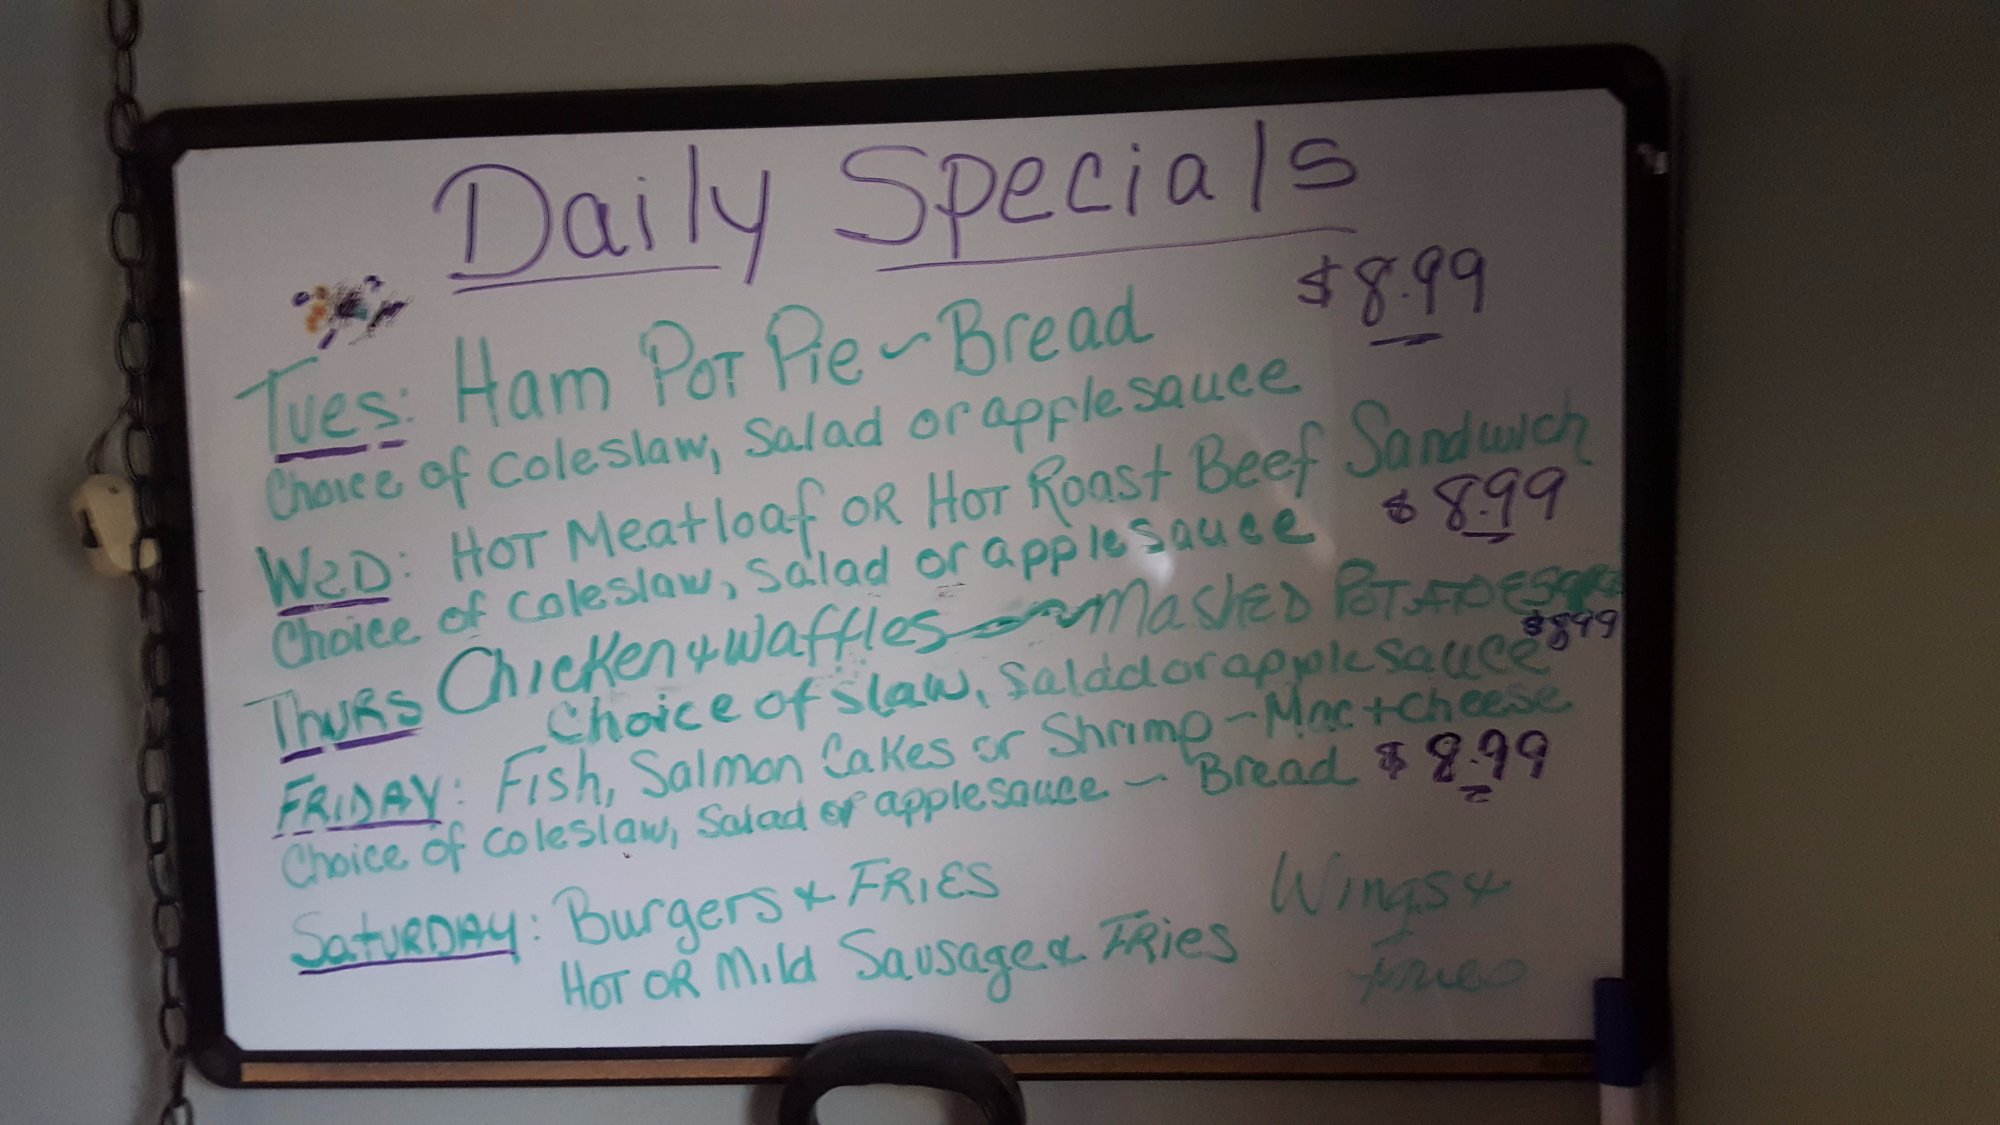 Daily Specials
$8.99
Tues: Ham Pot Pie ~ Bread
Choice of coleslaw, salad or applesauce
Wed: Hot Meatloaf or Hot Roast Beef Sandwich
$8.99
Choice of coleslaw, salad or applesauce
Thurs Chicken & waffles ~ Mashed Potatoes
$899
Choice of slaw, salad or applesauce
Friday: Fish, Salmon Cakes or Shrimp - Mac + cheese
Choice of coleslaw, salad or applesauce - Bread $8.99
Saturday: Burgers & Fries
Hot or Mild Sausage & Fries
Wings &
fries